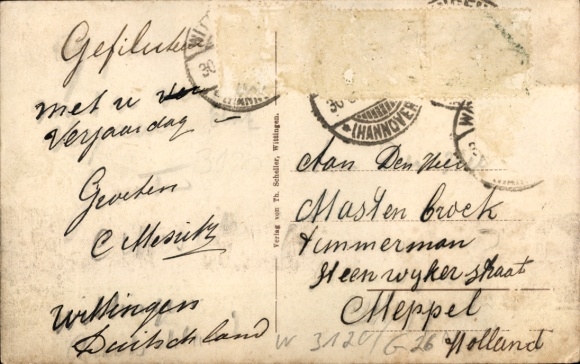 Gefiliciteerd
met u ver
Verjaardag
Groeten
C Mesritz
Wittingen
Duitschland
Verlag von Th. Scheller, Wittingen.
(HANNOVER)
Aan Den Heer
Mastenbroek
timmerman
Steenwykerstraat
Meppel
Holland
W 3120/G 26